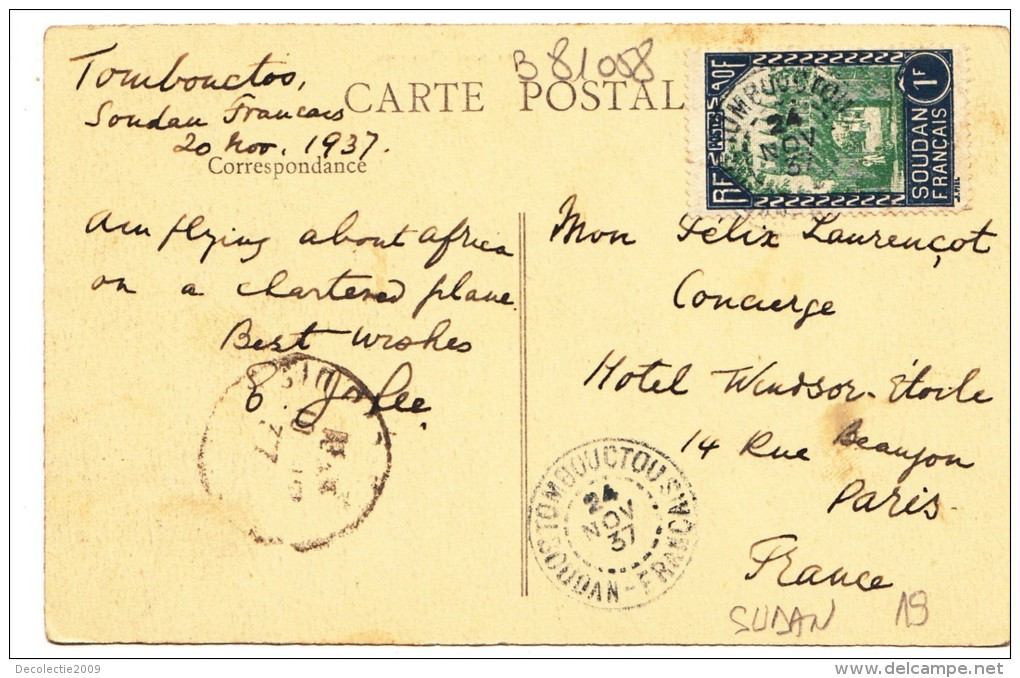 Tombouctoo,
Soudan Francais
20 Nov. 1937.
B 81058
CARTE POSTAL
Correspondance
RF
AOF
1F
SOUDAN
FRANÇAIS
TOMBOUCTOU
24
NOV
37
Am flying about africa
on a chartered plane
Best wishes
Mon Félix Laurençot
Concierge
Hotel Windsor-Etoile
14 Rue Beaujon
Paris
France
TOMBOUCTOU
24
NOV
37
SOUDAN-FRANÇAIS
SUDAN 19
Decolectie2009
www.delcampe.net